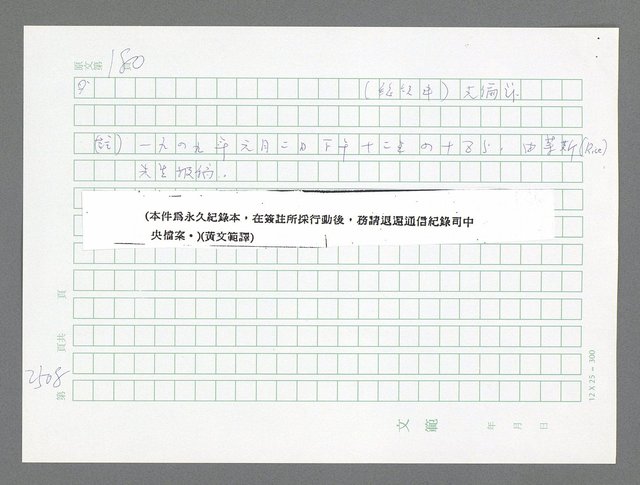 原文第180
(經紀中)先編訴
註)一九四九年元月二日下午十二點四十五分,由萊斯(Rice)
先生擬稿.
(本件為永久紀錄本,在簽註所採行動後,務請退還通信紀錄司中
央檔案。)(黃文範譯)
頁
頁共
2508
第
12 X 25 = 300
文範 年 月 日